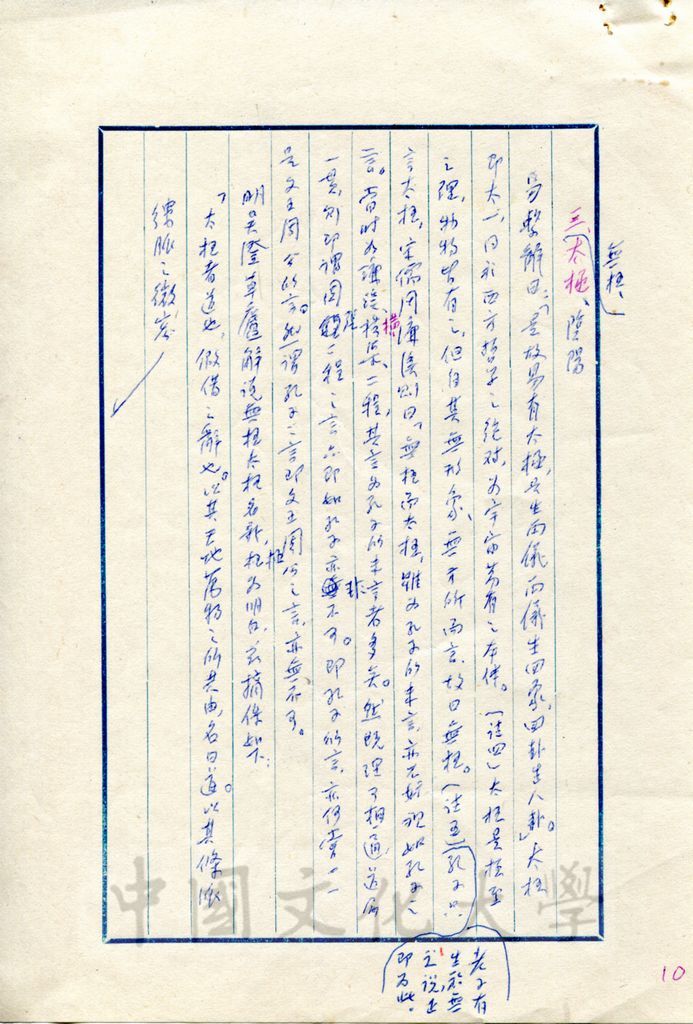 無極、
三、太極、陰陽
易繫辭曰:「是故易有太極,是生兩儀,兩儀生四象,四卦生八卦。」太極
即太一,同於西方哲學之絕對,為宇宙萬有之本體。(註四)太極是極至
之理,物物皆有之,但自其無形象、無方所而言,故曰無極。(註五)孔子只
老子有生於無之說正即為此。
言太極,宋儒周濂溪則曰「無極而太極」,雖為孔子所未言,亦不妨視如孔子之
言。當時如濂溪、橫渠、二程,其言為孔子所未言者多矣。然既理可相通,道屬
一貫,則即謂周張二程之言亦即如孔子亦非不可。即孔子所言,亦何嘗一一
是文王周公所言。然謂孔子之言即文王周公之言,亦無不可。
明吳澄草廬解說無極太極名辭,極為明白,茲摘條如下:
「太極者道也,假借之辭也。以其天地萬物之所共由,名曰道。以其條派
縷脈之微密
中國文化大學
10